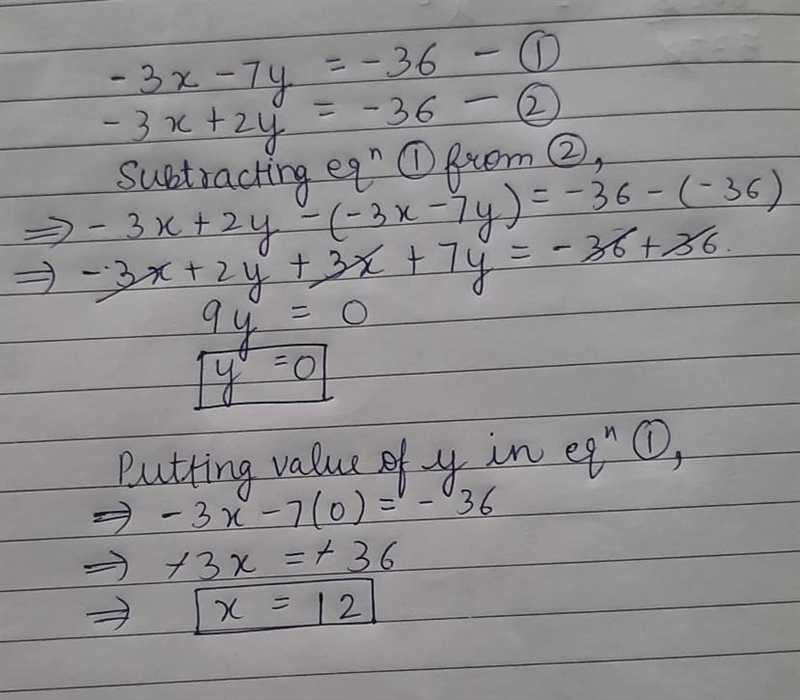 -3x - 7y = -36 - ①
-3x + 2y = -36 - ②
Subtracting eqⁿ ① from ②,
⇒ -3x + 2y - (-3x - 7y) = -36 - (-36)
⇒ -3x + 2y + 3x + 7y = -36 + 36.
9y = 0
y = 0
Putting value of y in eqⁿ ①,
⇒ -3x - 7(0) = -36
⇒ +3x = +36
⇒ x = 12